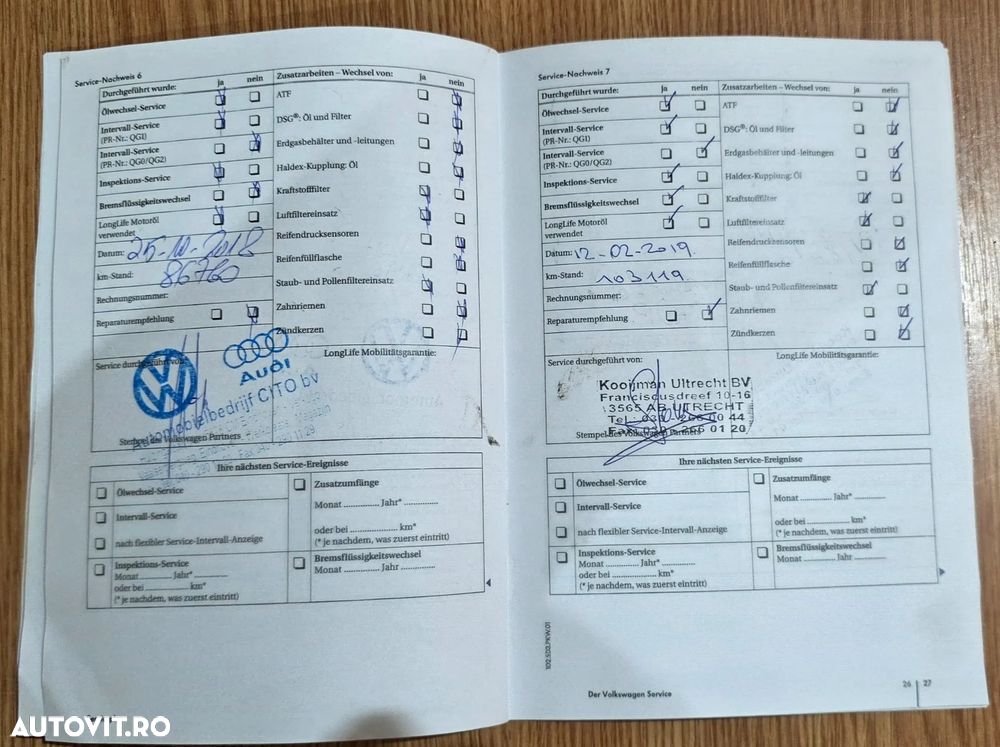 Service-Nachweis 6
Durchgeführt wurde: ja nein
Ölwechsel-Service
Intervall-Service
(PR-Nr.: QG1)
Intervall-Service
(PR-Nr.: QG0/QG2)
Inspektions-Service
Bremsflüssigkeitswechsel
LongLife Motoröl
verwendet
Datum: 25-10-2018
km-Stand: 86760
Rechnungsnummer:
Reparaturempfehlung
Zusatzarbeiten – Wechsel von: ja nein
ATF
DSG®: Öl und Filter
Erdgasbehälter und -leitungen
Haldex-Kupplung: Öl
Kraftstofffilter
Luftfiltereinsatz
Reifendrucksensoren
Reifenfüllflasche
Staub- und Pollenfiltereinsatz
Zahnriemen
Zündkerzen
Service durchgeführt von:
LongLife Mobilitätsgarantie:
Audi
Automobielbedrijf CITO bv
Stempel des Volkswagen Partners
Ihre nächsten Service-Ereignisse
Ölwechsel-Service
Intervall-Service
nach flexibler Service-Intervall-Anzeige
Inspektions-Service
Monat ........... Jahr* ...........
oder bei ............... km*
(* je nachdem, was zuerst eintritt)
Zusatzumfänge
Monat ........... Jahr* ...........
oder bei ............... km*
(* je nachdem, was zuerst eintritt)
Bremsflüssigkeitswechsel
Monat ........... Jahr ...........
Service-Nachweis 7
Durchgeführt wurde: ja nein
Ölwechsel-Service
Intervall-Service
(PR-Nr.: QG1)
Intervall-Service
(PR-Nr.: QG0/QG2)
Inspektions-Service
Bremsflüssigkeitswechsel
LongLife Motoröl
verwendet
Datum: 12-02-2019
km-Stand: 103119
Rechnungsnummer:
Reparaturempfehlung
Zusatzarbeiten – Wechsel von: ja nein
ATF
DSG®: Öl und Filter
Erdgasbehälter und -leitungen
Haldex-Kupplung: Öl
Kraftstofffilter
Luftfiltereinsatz
Reifendrucksensoren
Reifenfüllflasche
Staub- und Pollenfiltereinsatz
Zahnriemen
Zündkerzen
Service durchgeführt von:
LongLife Mobilitätsgarantie:
Kooyman Utrecht BV
Franciscusdreef 10-16
3565 AB UTRECHT
Tel. 030 - 266 00 44
Fax 030 - 266 01 20
Stempel des Volkswagen Partners
Ihre nächsten Service-Ereignisse
Ölwechsel-Service
Intervall-Service
nach flexibler Service-Intervall-Anzeige
Inspektions-Service
Monat ........... Jahr* ...........
oder bei ............... km*
(* je nachdem, was zuerst eintritt)
Zusatzumfänge
Monat ........... Jahr* ...........
oder bei ............... km*
(* je nachdem, was zuerst eintritt)
Bremsflüssigkeitswechsel
Monat ........... Jahr ...........
102.5D2.PKW.01
Der Volkswagen Service
26 27
AUTOVIT.RO